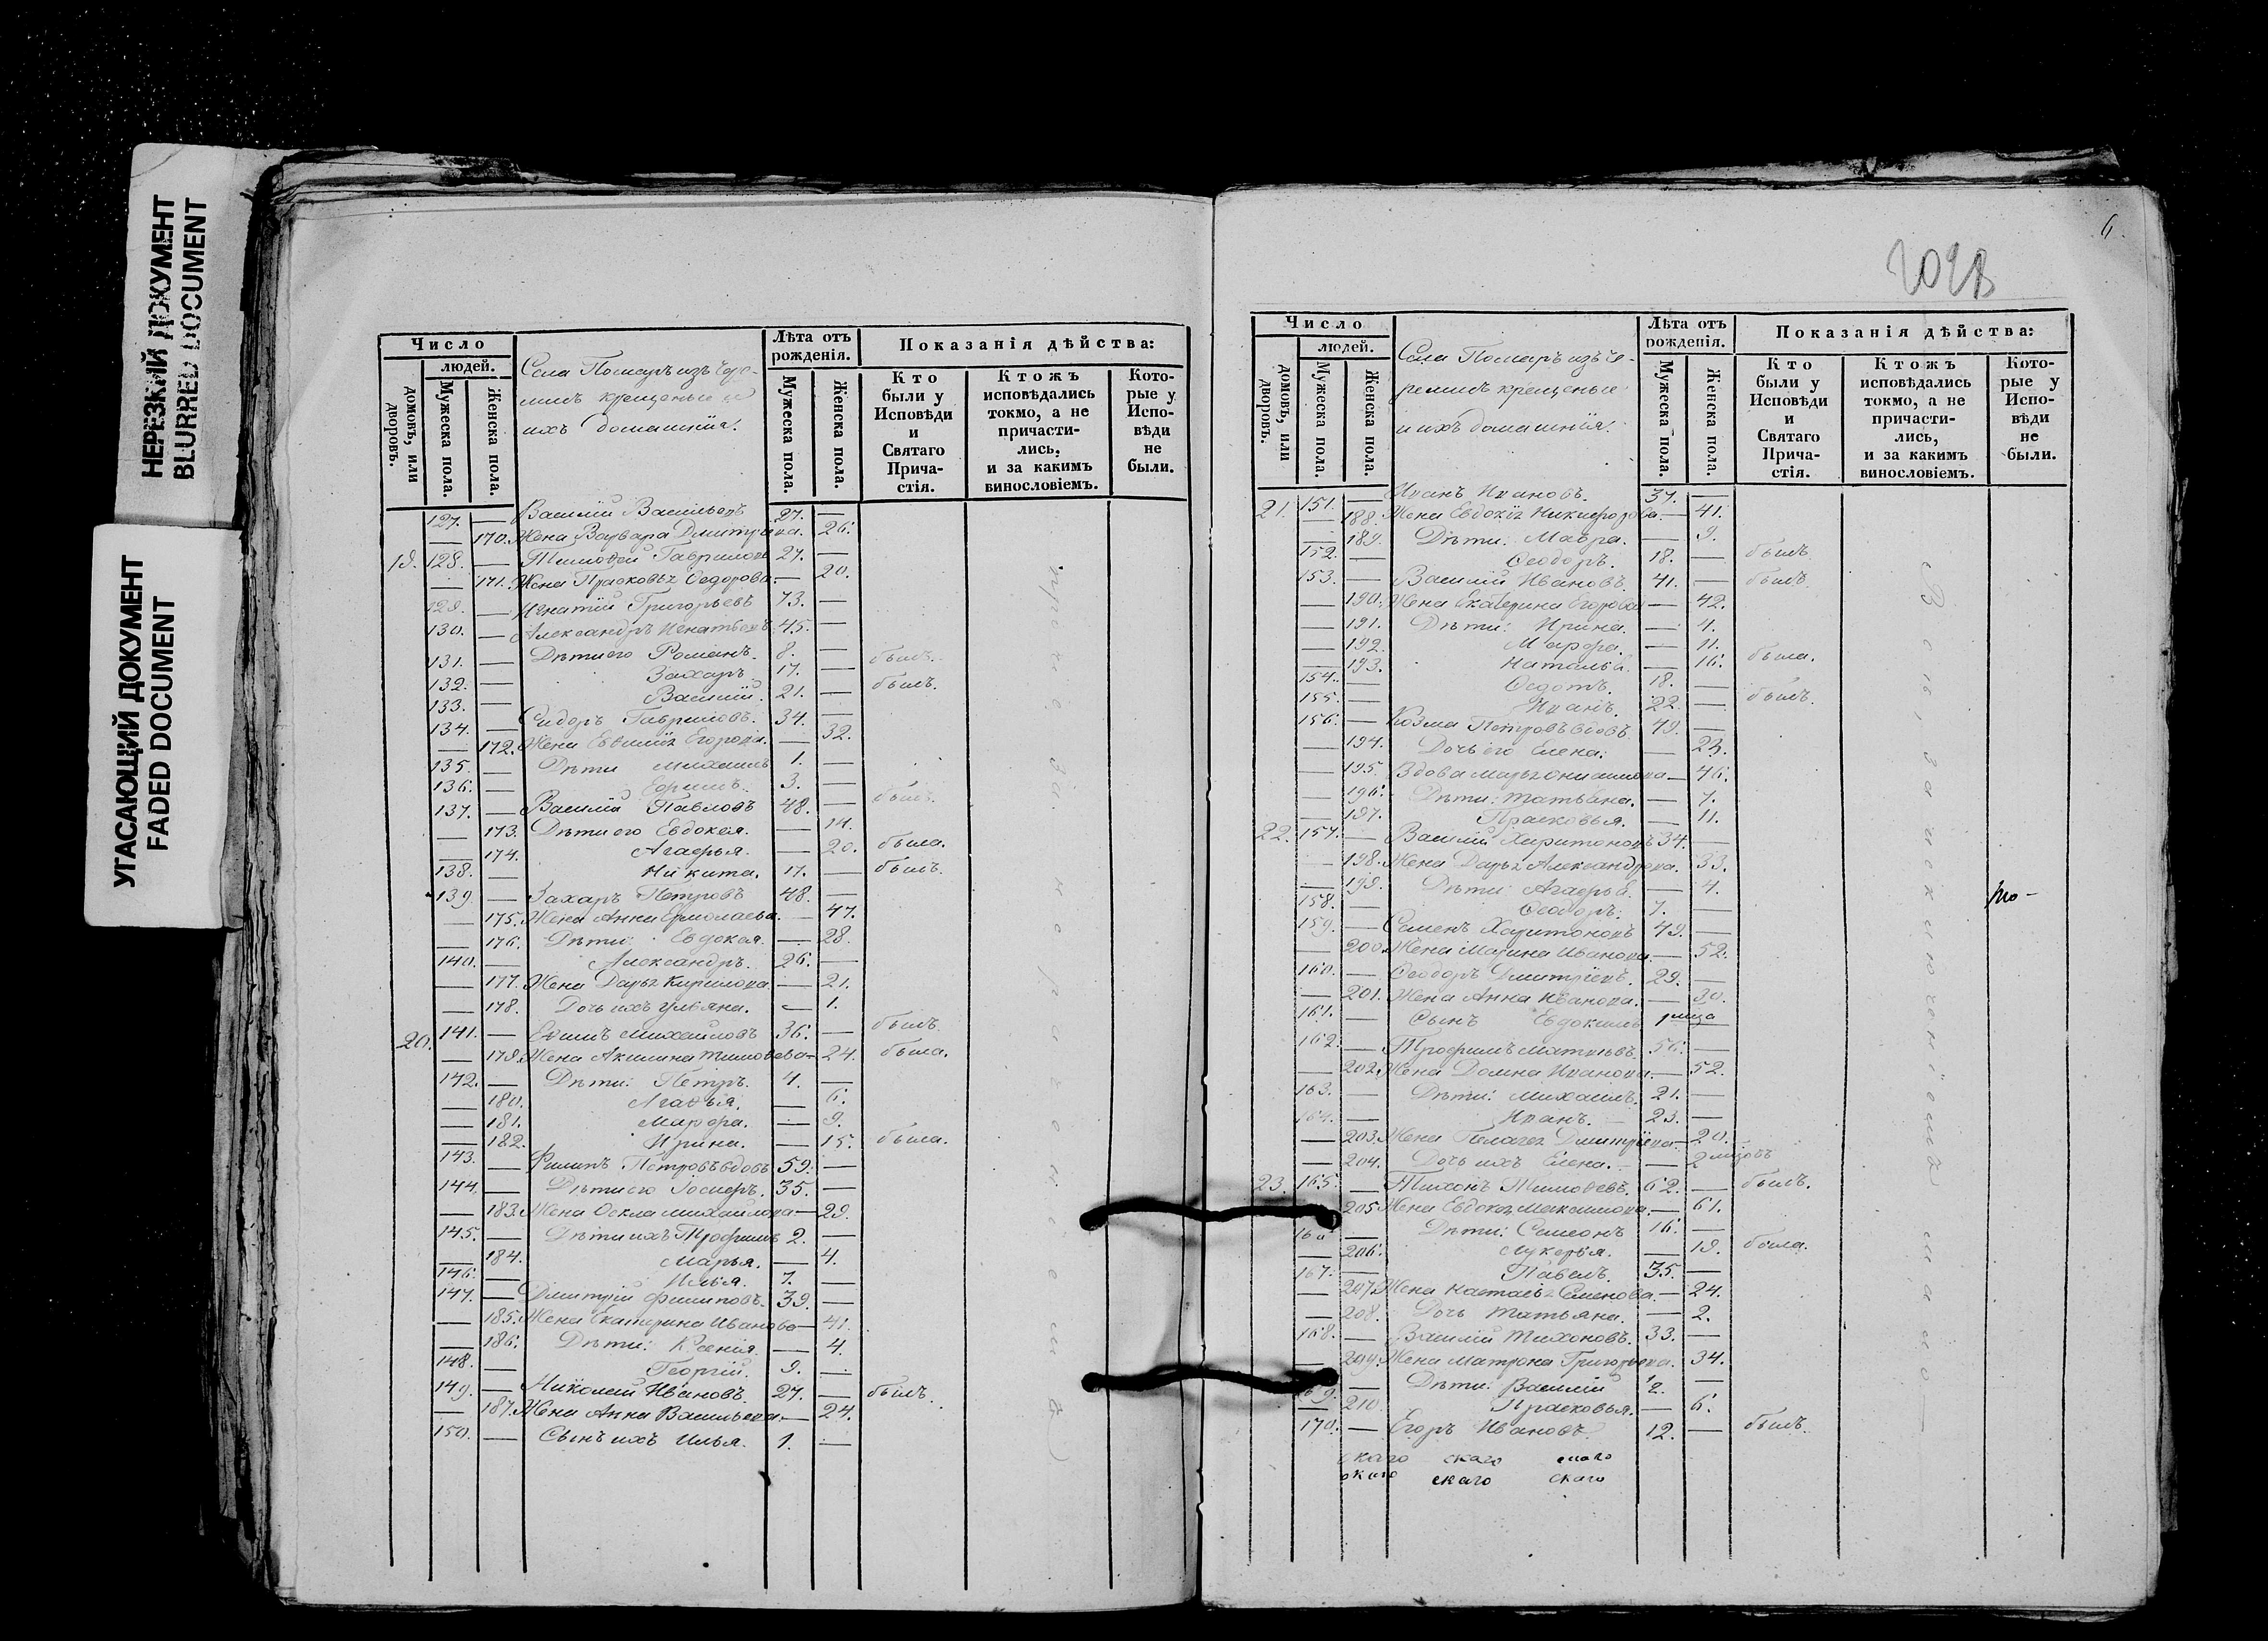 НЕРЕЗКИЙ ДОКУМЕНТ
BLURRED DOCUMENT
УГАСАЮЩИЙ ДОКУМЕНТ
FADED DOCUMENT
Число
людей.
домовъ, или дворовъ.
Мужеска пола.
Женска пола.
Села изъ Чере-
мисъ крещеные и
ихъ домашнія.
Лѣта отъ рожденія.
Мужеска пола.
Женска пола.
Показанія дѣйства:
Кто были у Исповѣди и Святаго Прича- стія.
Ктожъ исповѣдались токмо, а не причасти- лись, и за какимъ винословіемъ.
Кото- рые у Испо- вѣди не были.
127. — Василій Васильевъ 27. —
— 170. Жена Варвара Дмитріева. — 26.
19. 128. — Тимоѳей Гавриловъ 27. —
— 171. Жена Прасковья Ѳедорова — 20.
129. — Игнатій Григорьевъ 73. —
130. — Александръ Игнатьевъ 45. —
131. — Дѣти его Романъ. 8. —
132. — Захаръ. 17. — былъ.
133. — Василій. 21. — былъ.
134. — Сидоръ Гавриловъ. 34. —
— 172. Жена Евѳимія Егорова. — 32.
135. — Дѣти Михаилъ 1. —
136. — 3. —
137. — Василій Павловъ 48. — былъ.
— 173. Дѣти его Евдокея. — 14.
— 174. Агафья. — 20. была.
138. — Никита. 17. — былъ.
139. — Захаръ Петровъ 48. —
— 175. Жена Анна Ермолаева. — 47.
— 176. Дѣти: Евдокея. — 28.
140. — Александръ. 26. —
— 177. Жена Дарья Кирилова. — 21.
— 178. Дочь ихъ Ульяна. — 1.
20. 141. — Евѳимъ Михайловъ 36. — былъ.
— 179. Жена Акилина Тимоѳева — 24. была.
142. — Дѣти: Петръ. 4. —
— 180. Агаѳья. — 6.
— 181. Марфа. — 9.
— 182. Ирина. — 15. была.
143. — Филипъ Петровъ вдовъ 59. —
144. — Дѣти его Іосифъ. 35. —
— 183. Жена Ѳекла Михайлова — 29.
145. — Дѣти ихъ Трофимъ 2. —
— 184. Марья. — 4.
146. — Илья. 7. —
147. — Дмитрій Филиповъ. 39. —
— 185. Жена Екатерина Иванова — 41.
— 186. Дѣти: Ксенія. — 4.
148. — Георгій. 9. —
149. — Николай Ивановъ. 27. — былъ.
— 187. Жена Анна Васильева — 24.
150. — Сынъ ихъ Илья. 1. —
6.
Число
людей.
домовъ, или дворовъ.
Мужеска пола.
Женска пола.
Села изъ Че-
ремисъ крещеные
и ихъ домашнія.
Лѣта отъ рожденія.
Мужеска пола.
Женска пола.
Показанія дѣйства:
Кто были у Исповѣди и Святаго Прича- стія.
Ктожъ исповѣдались токмо, а не причасти- лись, и за какимъ винословіемъ.
Кото- рые у Испо- вѣди не были.
21. 151. — Иванъ Ивановъ. 37. —
— 188. Жена Евдокія Никифорова. — 41.
— 189. Дѣти: Мавра. — 9.
152. — Ѳеодоръ. 18. — былъ
153. — Василій Ивановъ. 41. — былъ
— 190. Жена Екатерина Егорова — 42.
— 191. Дѣти: Ирина. — 4.
— 192. Марфа. — 11.
— 193. Наталья. — 16. была.
154. — Ѳедотъ. 18. —
155. — Иванъ. 22. — былъ.
156. — Козма Петровъ вдовъ 49. —
— 194. Дочь его Елена. — 23.
— 195. Вдова Марья — 46.
— 196. Дѣти: Татьяна. — 7.
— 197. Прасковья. — 11.
22. 157. — Василій Харитоновъ 34. —
— 198. Жена Дарья Александрова. — 33.
— 199. Дѣти: Агафья — 4.
158. — Ѳеодоръ. 7. —
159. — Семенъ Харитоновъ 49. —
— 200. Жена Марина Иванова — 52.
160. — Ѳеодоръ Дмитріевъ. 29. —
— 201. Жена Анна Иванова. — 30.
161. — Сынъ Евдокимъ
162. — Трофимъ Матвѣевъ. 56. —
— 202. Жена Домна Иванова. — 52.
163. — Дѣти: Михаилъ. 21. —
164. — Иванъ. 23. —
— 203. Жена Пелагея Дмитріева — 20.
— 204. Дочь ихъ Елена. — 2
23. 165. — Тихонъ Тимоѳеевъ. 62. — былъ.
205. Жена Евдокія Максимова. — 61.
166 Дѣти: Семеонъ 16. —
— 206. Лукерья. — 19. была.
167. — Павелъ. 35. —
— 207. Жена Настасья Семенова. — 24.
— 208. Дочь Татьяна. — 2.
168. — Василій Тихоновъ. 33. —
— 209. Жена Матрона Григорьева. 34.
169. — Дѣти: Василій 2. —
— 210 Прасковья. — 6.
170. — Егоръ Ивановъ. 12. — былъ.
скаго скаго скаго
скаго скаго скаго